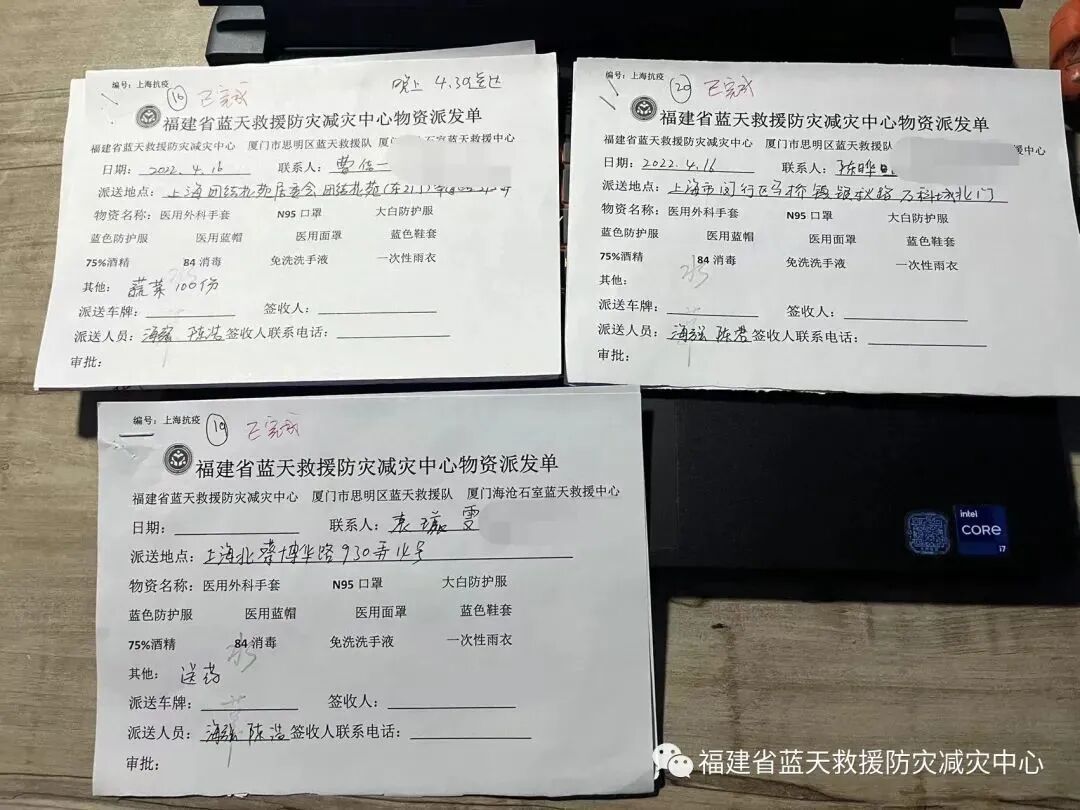 编号：上海抗疫 16 已完成 晚上 4.30送达
福建省蓝天救援防灾减灾中心物资派发单
福建省蓝天救援防灾减灾中心 厦门市思明区蓝天救援队 石室蓝天救援中心
日期：2022.4.16 联系人：曹
派送地点：上海
物资名称：医用外科手套 N95 口罩 大白防护服
蓝色防护服 医用蓝帽 医用面罩 蓝色鞋套
75%酒精 84 消毒 免洗洗手液 一次性雨衣
其他：蔬菜 100份
派送车牌： 签收人：
派送人员：海强 陈浩 签收人联系电话：
审批：
编号：上海抗疫 20 已完成
福建省蓝天救援防灾减灾中心物资派发单
福建省蓝天救援防灾减灾中心 厦门市思明区蓝天救援队 蓝天救援中心
日期：2022.4.16 联系人：
派送地点：上海市闵行区马桥镇 万科城北门
物资名称：医用外科手套 N95 口罩 大白防护服
蓝色防护服 医用蓝帽 医用面罩 蓝色鞋套
75%酒精 84 消毒 免洗洗手液 一次性雨衣
其他：
派送车牌： 签收人：
派送人员：海强 陈浩 签收人联系电话：
审批：
编号：上海抗疫 19 已完成
福建省蓝天救援防灾减灾中心物资派发单
福建省蓝天救援防灾减灾中心 厦门市思明区蓝天救援队 厦门海沧石室蓝天救援中心
日期： 联系人：袁 雯
派送地点：上海北蔡博华路930弄14号
物资名称：医用外科手套 N95 口罩 大白防护服
蓝色防护服 医用蓝帽 医用面罩 蓝色鞋套
75%酒精 84 消毒 免洗洗手液 一次性雨衣
其他：送药
派送车牌： 签收人：
派送人员：海强 陈浩 签收人联系电话：
审批：
intel
CORE
i7
福建省蓝天救援防灾减灾中心